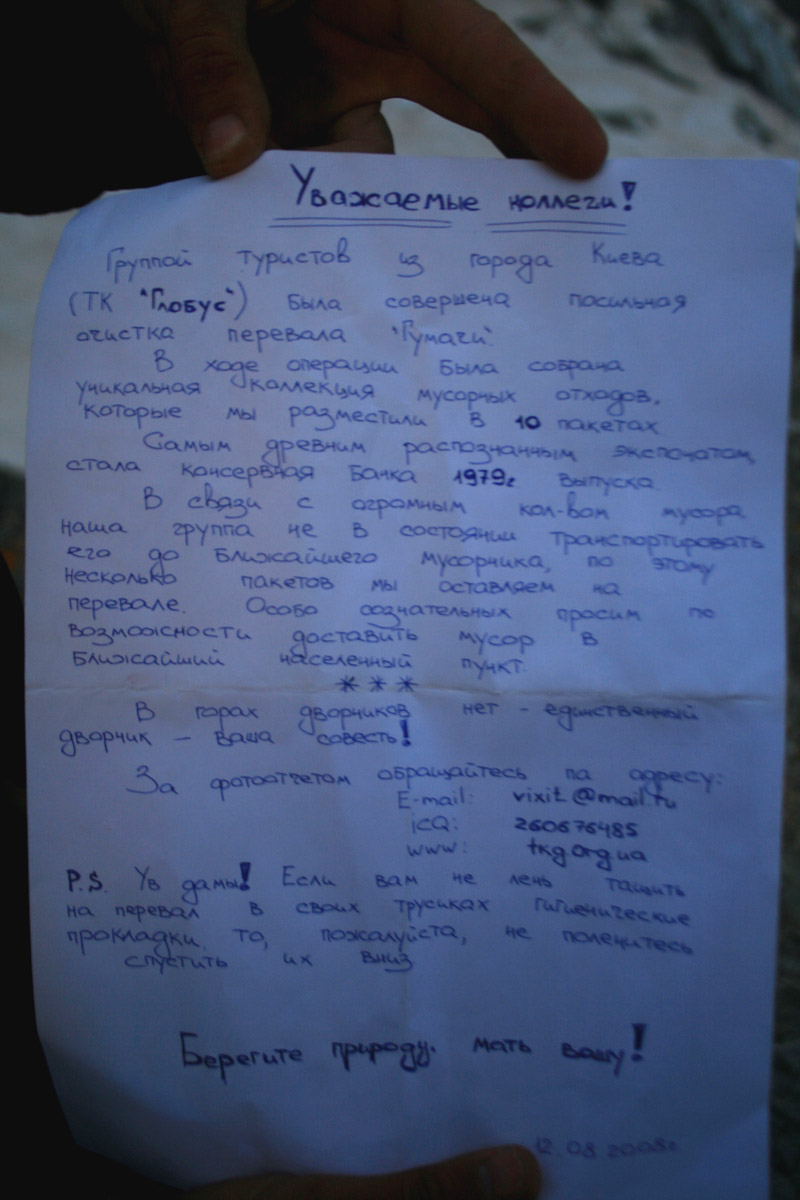 Уважаемые коллеги!
Группой туристов из города Киева
(ТК "Глобус") была совершена посильная
очистка перевала "Гумачи".
В ходе операции была собрана
уникальная коллекция мусорных отходов,
которые мы разместили в 10 пакетах
Самым древним распознанным экспонатом
стала консервная банка 1979г выпуска
В связи с огромным кол-вом мусора
наша группа не в состоянии транспортировать
его до ближайшего мусорника, по этому
несколько пакетов мы оставляем на
перевале. Особо сознательных просим по
возможности доставить мусор в
ближайший населенный пункт.
***
В горах дворников нет - единственный
дворник - ваша совесть!
За фотоотчетом обращайтесь па адресу:
E-mail: vixit@mail.ru
iCQ: 260676485
www: tkg.org.ua
P.S. Ув дамы! Если вам не лень тащить
на перевал в своих трусиках гигиенические
прокладки, то, пожалуйста, не поленитесь
спустить их вниз
Берегите природу, мать вашу!
12.08.2008г